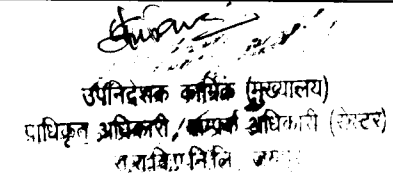 उपनिदेशक कार्मिक (मुख्यालय)
प्राधिकृत अधिकारी/सम्पर्क अधिकारी (रोस्टर)
रा.रा.वि.प्र.नि.लि. जयपुर